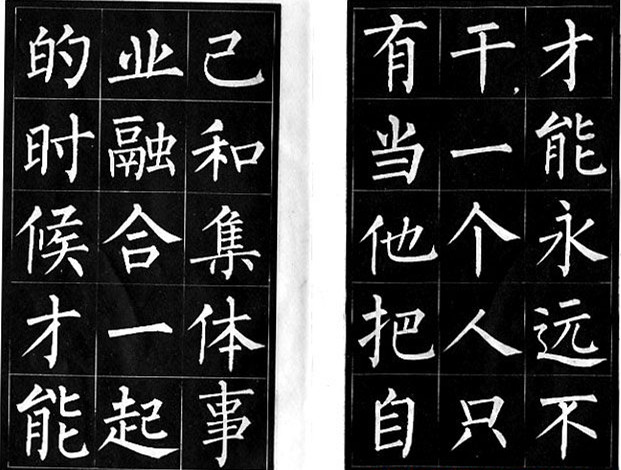 才能永远不
干,一个人只
有当他把自
己和集体事
业融合一起
的时候才能